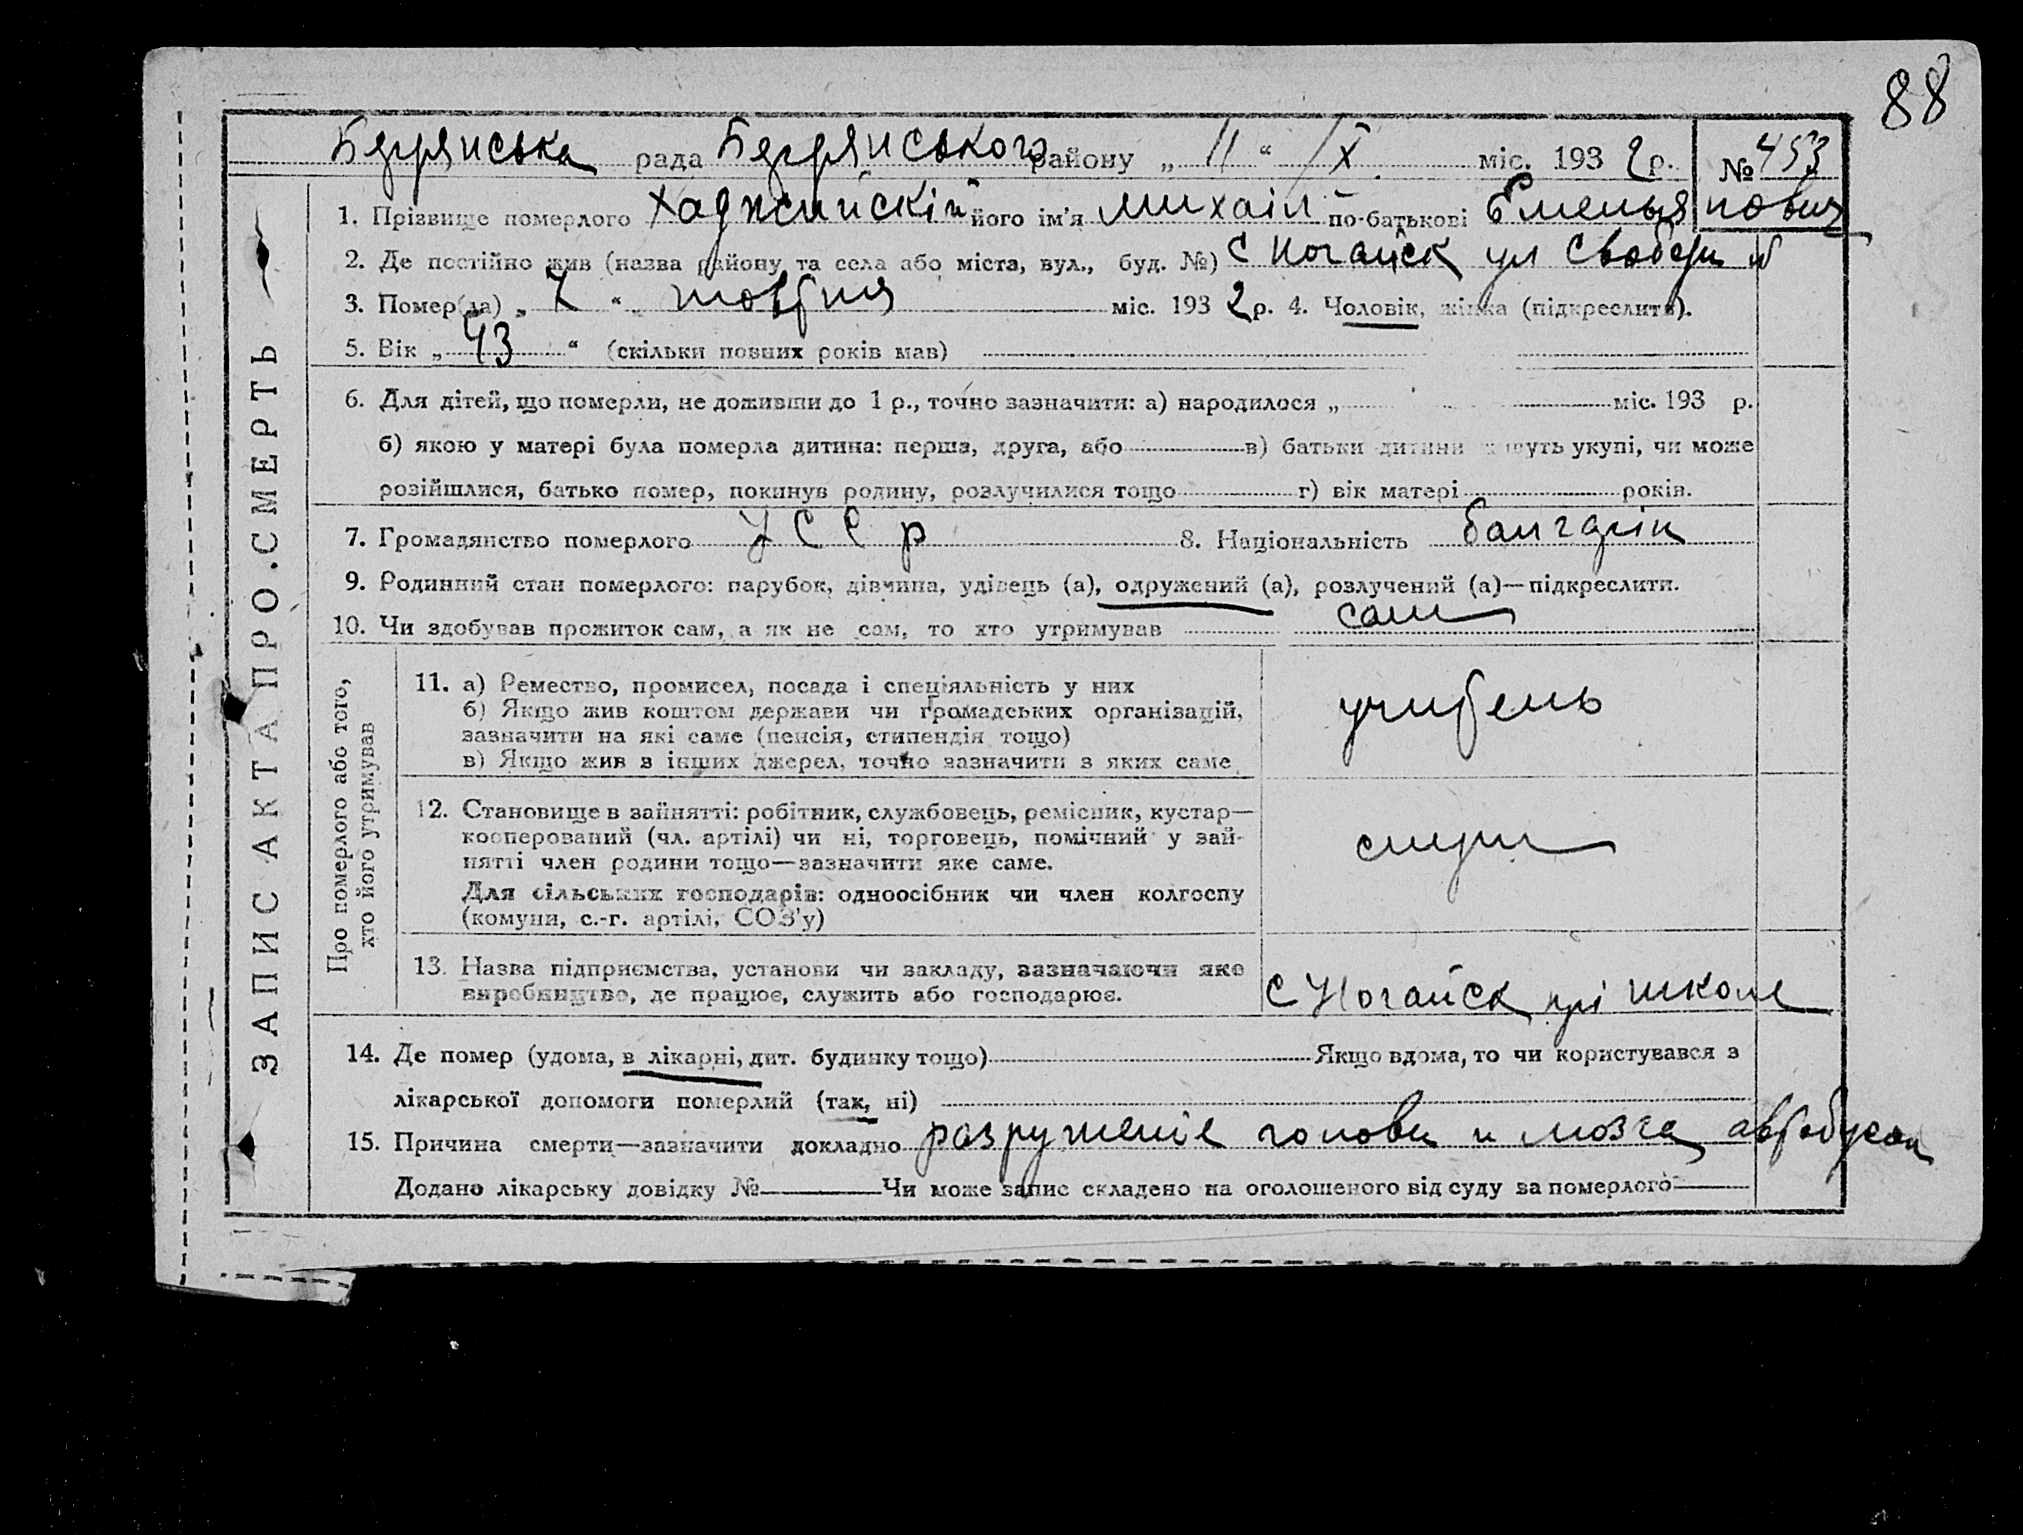 88
Бердянська рада Бердянського району „ 11 “ /X міс. 1932 р. № 453
1. Прізвище померлого Хаджийскій його ім'я Михаіл по-батькові Емельянович
2. Де постійно жив (назва району та села або міста, вул., буд. №) с Ногайск ул Свободы
3. Помер(ла) „ 7 “ жовтня міс. 1932 р. 4. Чоловік, жінка (підкреслити).
5. Вік „ 43 “ (скільки повних років мав)
6. Для дітей, що померли, не доживши до 1 р., точно зазначити: а) народилося „ міс. 193 р.
б) якою у матері була померла дитина: перша, друга, або в) батьки дитини живуть укупі, чи може
розійшлися, батько помер, покинув родину, розлучилися тощо г) вік матері років.
7. Громадянство померлого УССР 8. Національність
9. Родинний стан померлого: парубок, дівчина, удівець (а), одружений (а), розлучений (а)—підкреслити.
10. Чи здобував прожиток сам, а як не сам, то хто утримував сам
ЗАПИС АКТА ПРО СМЕРТЬ
Про померлого або того,
хто його утримував
11. а) Ремество, промисел, посада і спеціяльність у них
б) Якщо жив коштом держави чи громадських організацій,
зазначити на які саме (пенсія, стипендія тощо)
в) Якщо жив з інших джерел, точно зазначити з яких саме
учитель
12. Становище в зайнятті: робітник, службовець, ремісник, кустар—
кооперований (чл. артілі) чи ні, торговець, помічний у зай-
нятті член родини тощо—зазначити яке саме.
Для сільських господарів: одноосібник чи член колгоспу
(комуни, с.-г. артілі, СОЗ'у)
служ
13. Назва підприємства, установи чи закладу, зазначаючи яке
виробництво, де працює, служить або господарює.
с Ногайск прі школе
14. Де помер (удома, в лікарні, дит. будинку тощо) Якщо вдома, то чи користувався з
лікарської допомоги померлий (так, ні)
15. Причина смерти—зазначити докладно разрушеніе головы и мозга автобусом
Додано лікарську довідку № Чи може запис складено на оголошеного від суду за померлого